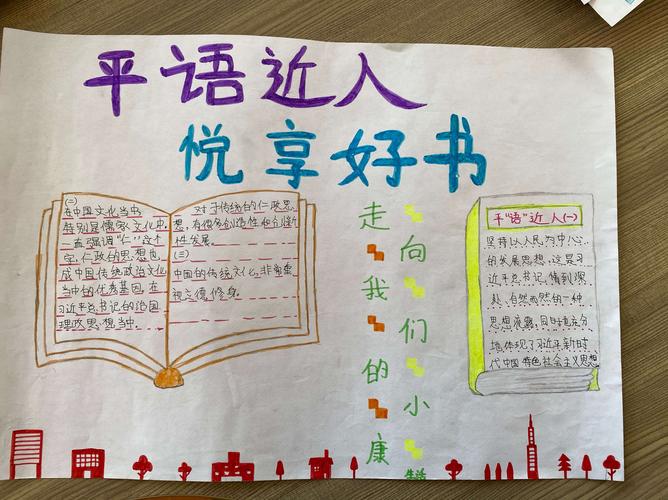 平语近人
悦享好书
(二)
在中国文化当中,
特别是儒家文化中,
一直强调“仁”这个
字,仁政的思想也
成中国传统政治文化
当中的优秀基因,在
习近平总书记的治国
理政思想当中。
对于传统的仁政思
想,有很多创造性和创新
性发展。
(三)
中国的传统文化,非常重
视立德,修身。
走向我们的小康
平“语”近人(一)
坚持以人民为中心
的发展思想,这是习
近平总书记,情到深
处,自然而然的一种
思想流露,同时也充分
地体现了习近平新时
代中国特色社会主义思想